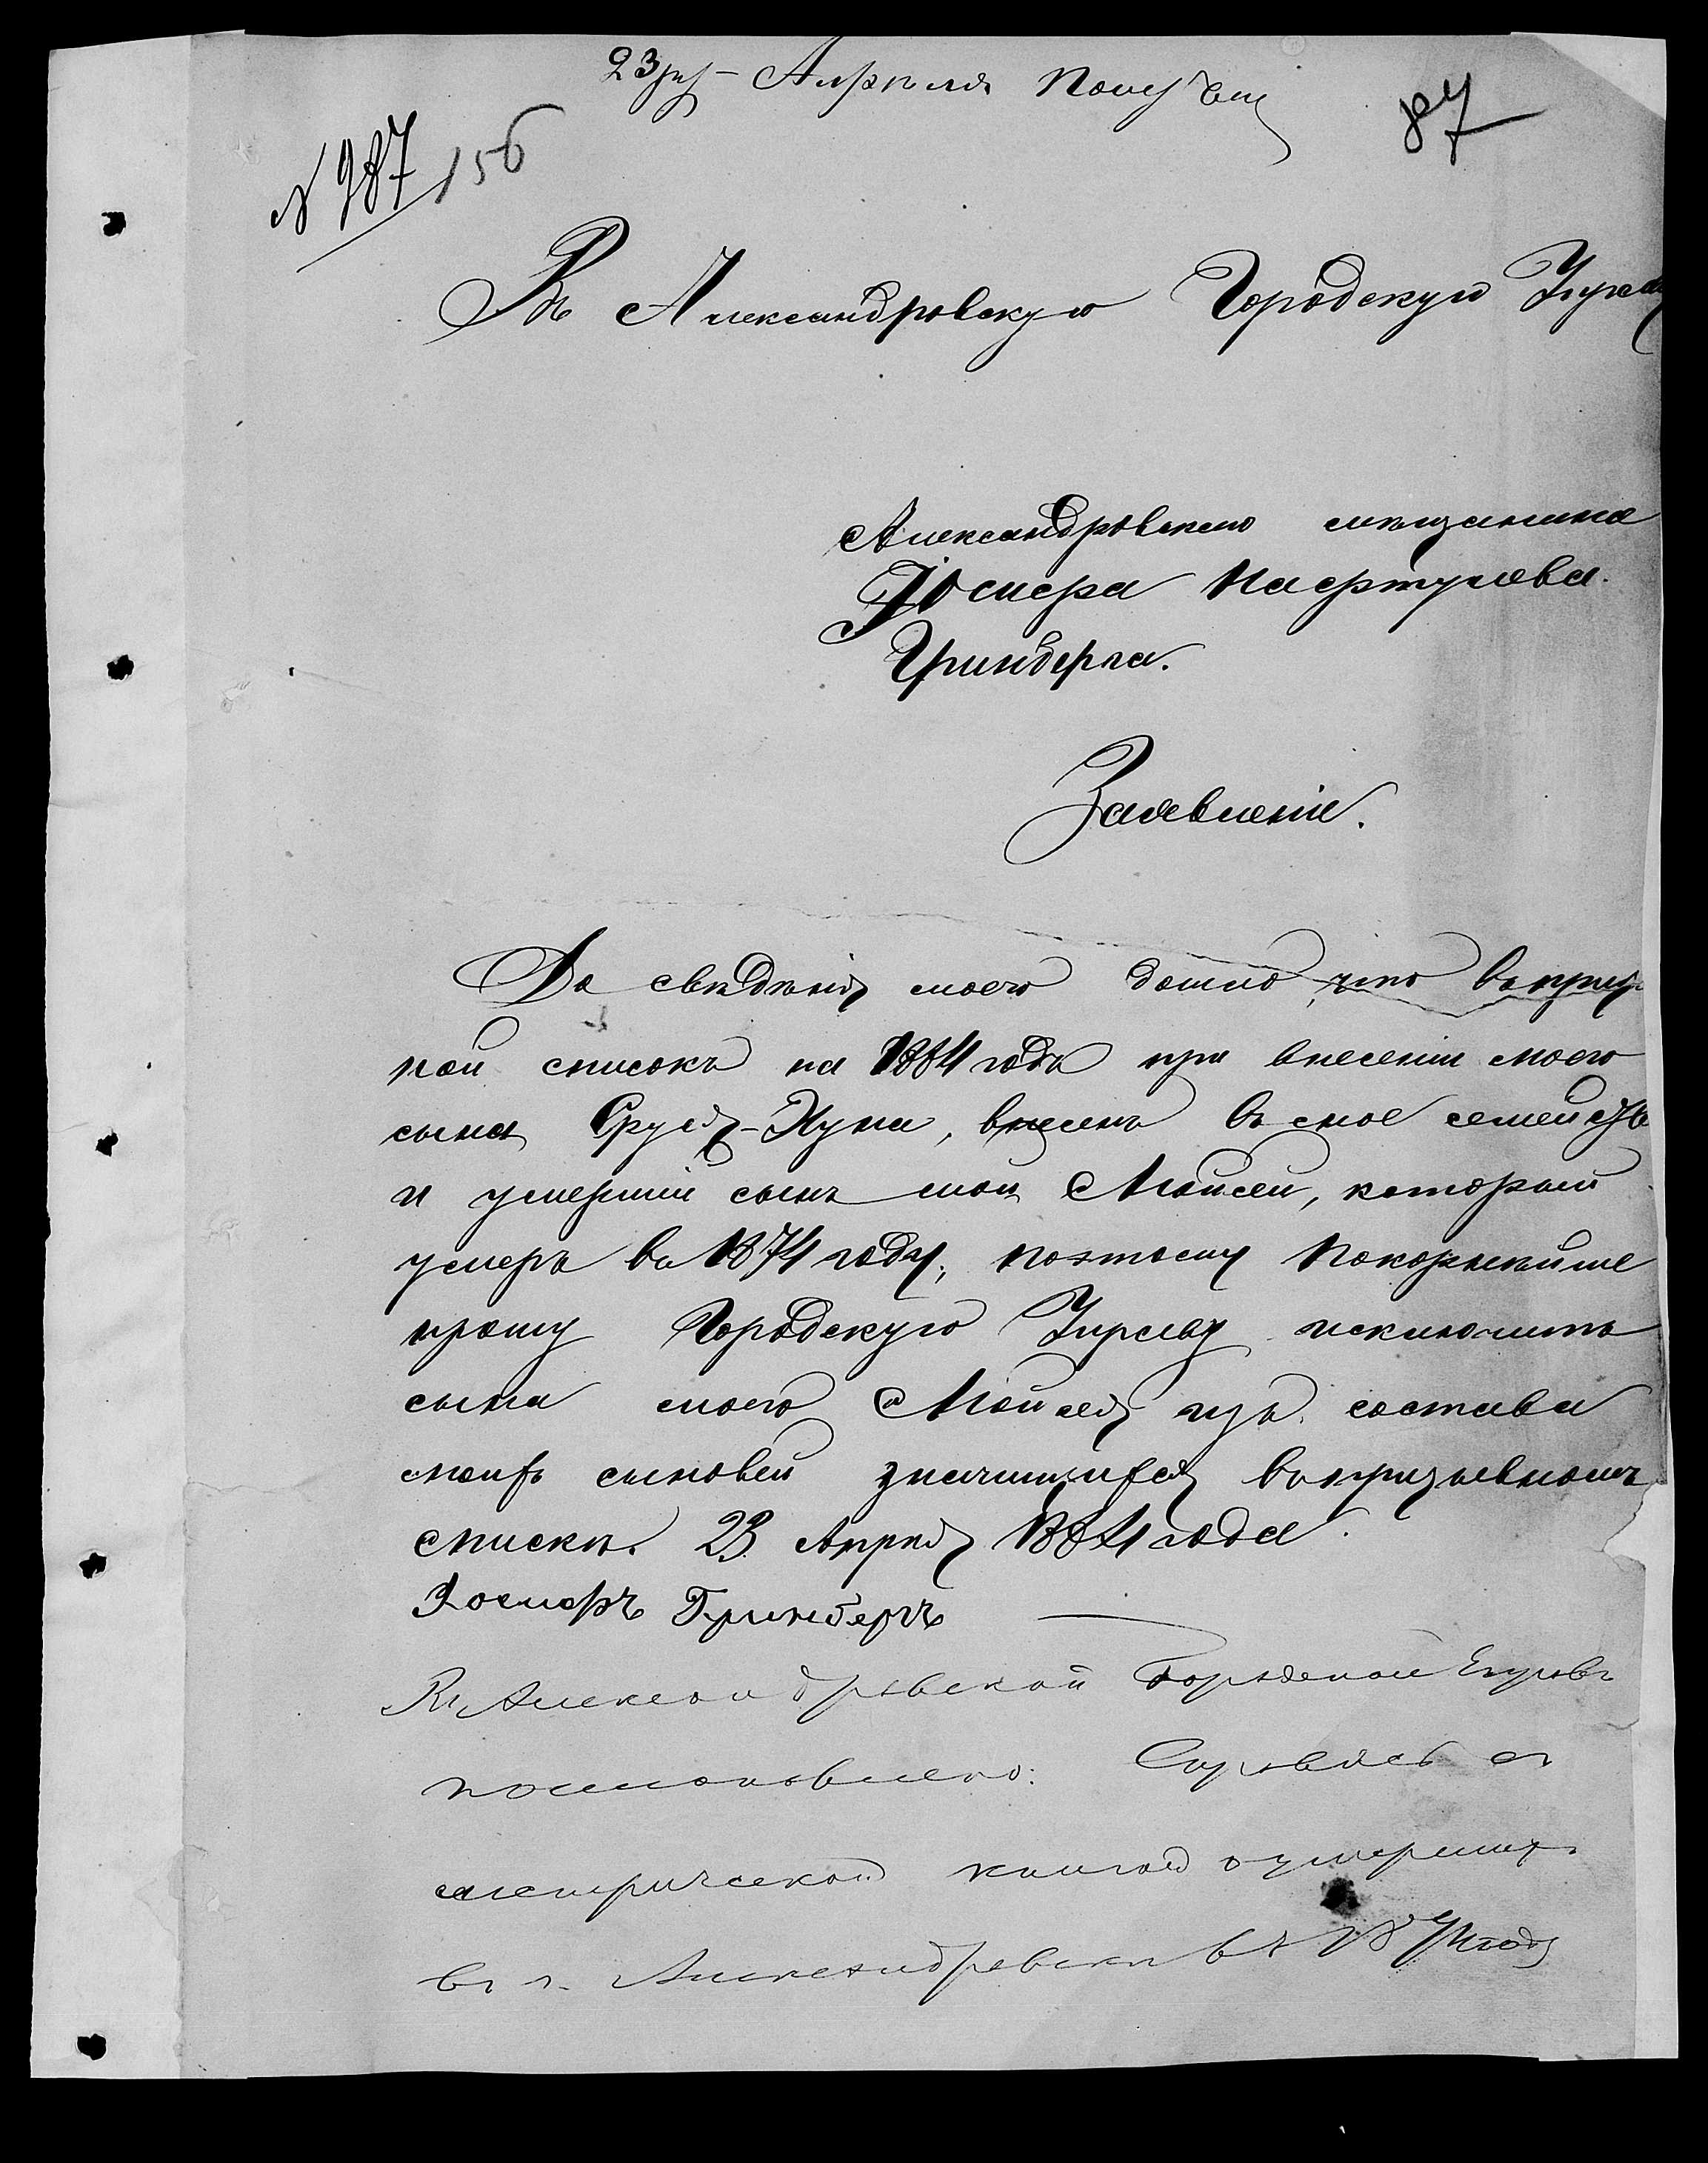 23 Апрѣля Получен
87
№ 987 156
Въ Александровскую Городскую Управу
Александровского мѣщанина
Юсмера
Гринберга.
Заявленіе.
До свѣдѣнія моего дошло, что въ призыв
ной списокъ на 1884 годъ при внесеніи моего
сына Сруля-Нуна, внесенъ въ мое семейство
и умершій сынъ мой Мойсей, который
умеръ въ 1874 году; поэтому покорнѣйше
прошу Городскую Управу исключить
сына моего Мойсея изъ состава
моихъ сыновей значащихся въ призывномъ
спискѣ. 23 Апрѣля 1884 года.
Юсмеръ Гринбергъ
Въ Александровской Городской Управѣ
постановлено: Справясь съ
метрической книгой о умершихъ
въ г. Александровскѣ въ 1874 году